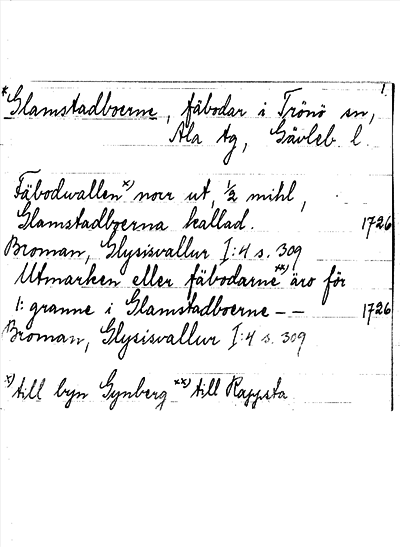 1.
*Glamstadboerne, fäbodar i Trönö sn,
Ala tg, Gävleb. l.
Fäbodwallen x) norr ut, 1/2 mihl,
Glamstadboerna kallad. 1726
Broman, Glysisvallur I:4 s. 309
Utmarken eller fäbodarne xx) äro för
1: granne i Glamstadboerne - - 1726
Broman, Glysisvallur I:4 s. 309
x) till byn Gynberg xx) till Rappsta